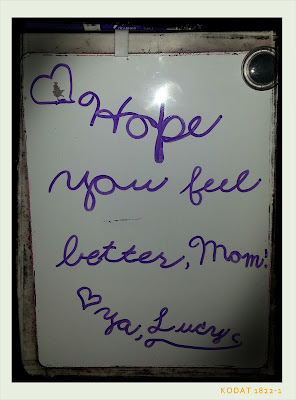 ♡ Hope
you feel
better, Mom!
♡ ya, Lucy
KODAT 1822-1